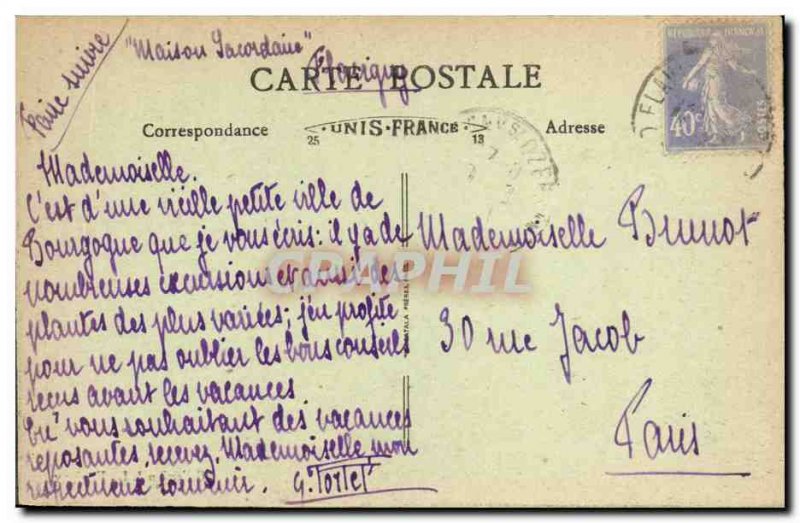 Faire suivre
"Maison Lacordaire"
Flavigny
CARTE POSTALE
RÉPUBLIQUE FRANÇAISE
40c
POSTES
Correspondance
UNIS-FRANCE
25
13
Adresse
Mademoiselle.
C'est d'une vieille petite ville de
Bourgogne que je vous écris: il y a de
nombreuses excursions et aussi des
plantes des plus variées; j'en profite
pour ne pas oublier les bons conseils
reçus avant les vacances.
En vous souhaitant des vacances
reposantes, recevez, Mademoiselle, mon
respectueux souvenir. G. Tortet
Mademoiselle Brunot
30 rue Jacob
Paris
CPAPHIL